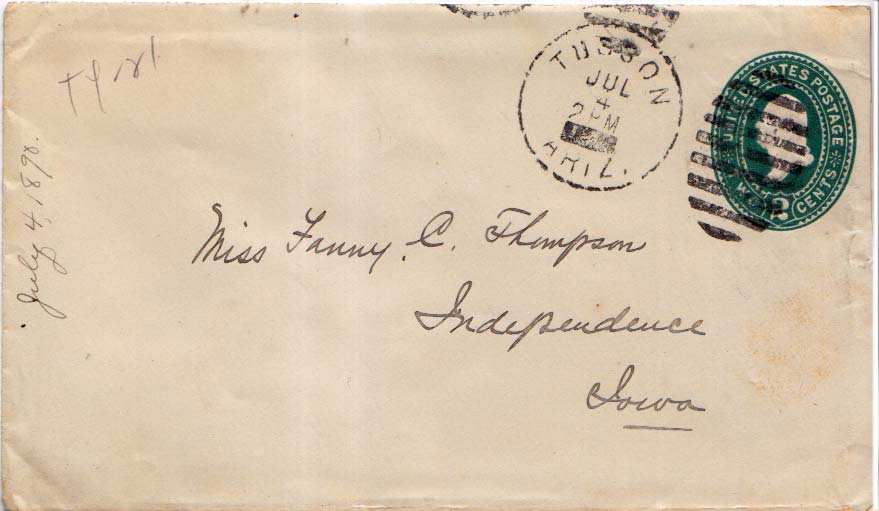 TUCSON
JUL
4
2 PM
ARIZ.
UNITED STATES POSTAGE
TWO 2 CENTS
July 4, 1890.
Miss Fanny C. Thompson
Independence
Iowa